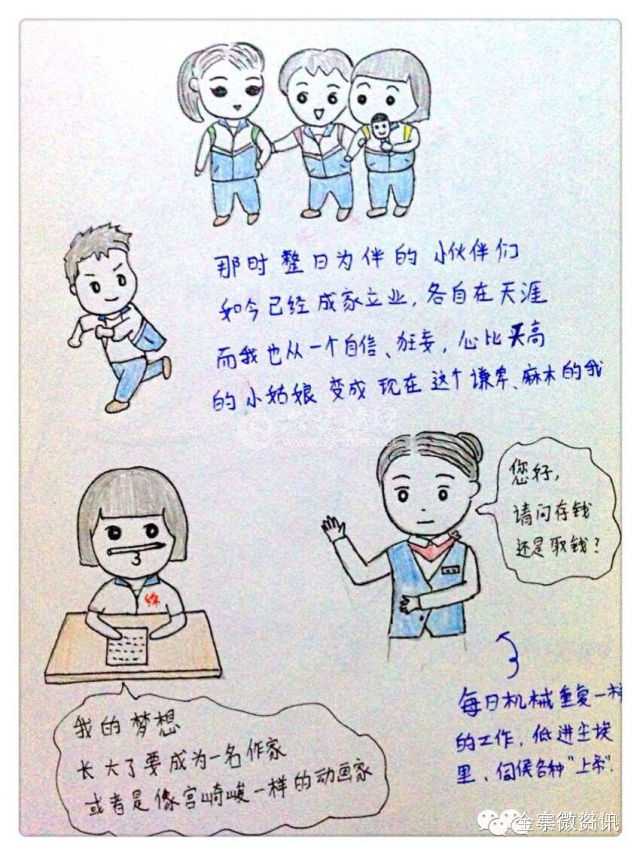 那时整日为伴的小伙伴们
如今已经成家立业,各自在天涯
而我也从一个自信、狂妄,心比天高
的小姑娘变成现在这个谦卑、麻木的我
您好,
请问存钱
还是取钱?
每日机械重复一样
的工作,低进尘埃
里、伺侯各种“上帝”.
我的梦想
长大了要成为一名作家
或者是像宫崎峻一样的动画家
金寨微资讯